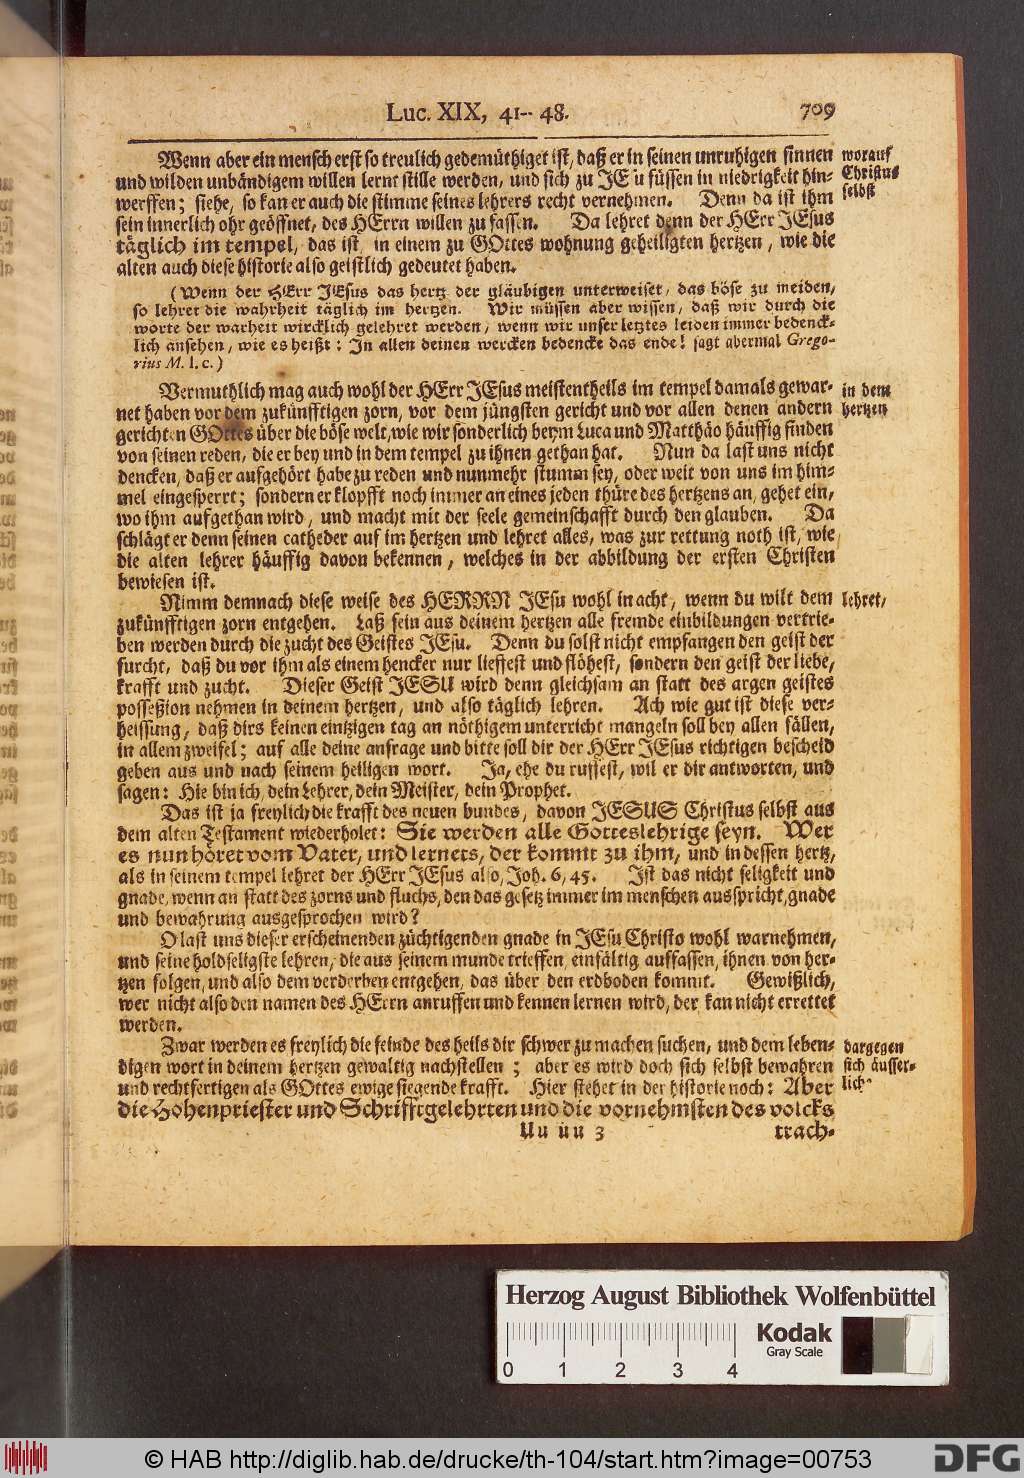 Luc. XIX, 41-- 48. 709
Wenn aber ein mensch erst so treulich gedemüthiget ist, daß er in seinen unruhigen sinnen
und wilden unbändigem willen lernt stille werden, und sich zu JEsu füssen in niedrigkeit hin-
werffen; siehe, so kan er auch die stimme seines lehrers recht vernehmen. Denn da ist ihm
sein innerlich ohr geöffnet, des HErrn willen zu fassen. Da lehret denn der HErr JEsus
täglich im tempel, das ist, in einem zu GOttes wohnung geheiligten hertzen, wie die
alten auch diese historie also geistlich gedeutet haben.
worauf
Christus
selbst
(Wenn der HErr JEsus das hertz der gläubigen unterweiset, das böse zu meiden,
so lehret die wahrheit täglich im hertzen. Wir müssen aber wissen, daß wir durch die
worte der warheit wircklich gelehret werden, wenn wir unser letztes leiden immer bedenck-
lich ansehen, wie es heißt: In allen deinen wercken bedencke das ende! sagt abermal Grego-
rius M. l. c.)
Vermuthlich mag auch wohl der HErr JEsus meistentheils im tempel damals gewar-
net haben vor dem zukünfftigen zorn, vor dem jüngsten gericht und vor allen denen andern
gerichten GOttes über die böse welt, wie wir sonderlich beym Luca und Matthäo häuffig finden
von seinen reden, die er bey und in dem tempel zu ihnen gethan hat. Nun da last uns nicht
dencken, daß er aufgehört habe zu reden und nunmehr stumm sey, oder weit von uns im him-
mel eingesperrt; sondern er klopfft noch immer an eines jeden thüre des hertzens an, gehet ein,
wo ihm aufgethan wird, und macht mit der seele gemeinschafft durch den glauben. Da
schlägt er denn seinen catheder auf im hertzen und lehret alles, was zur rettung noth ist, wie
die alten lehrer häuffig davon bekennen, welches in der abbildung der ersten Christen
bewiesen ist.
in dem
hertzen
Nimm demnach diese weise des HERRN JEsu wohl in acht, wenn du wilt dem
zukünfftigen zorn entgehen. Laß sein aus deinem hertzen alle fremde einbildungen vertrie-
ben werden durch die zucht des Geistes JEsu. Denn du solst nicht empfangen den geist der
furcht, daß du vor ihm als einem hencker nur lieffest und flöhest, sondern den geist der liebe,
krafft und zucht. Dieser Geist JESU wird denn gleichsam an statt des argen geistes
posseßion nehmen in deinem hertzen, und also täglich lehren. Ach wie gut ist diese ver-
heissung, daß dirs keinen eintzigen tag an nöthigem unterricht mangeln soll bey allen fällen,
in allem zweifel; auf alle deine anfrage und bitte soll dir der HErr JEsus richtigen bescheid
geben aus und nach seinem heiligen wort. Ja, ehe du ruffest, wil er dir antworten, und
sagen: Hie bin ich, dein Lehrer, dein Meister, dein Prophet.
lehret,
Das ist ja freylich die krafft des neuen bundes, davon JESUS Christus selbst aus
dem alten Testament wiederholet: Sie werden alle Gottes lehrige seyn. Wer
es nun höret vom Vater, und lernets, der kommt zu ihm, und in dessen hertz,
als in seinem tempel lehret der HErr JEsus also, Joh. 6, 45. Ist das nicht seligkeit und
gnade, wenn an statt des zorns und fluchs, den das gesetz immer im menschen ausspricht, gnade
und bewahrung ausgesprochen wird?
O last uns dieser erscheinenden züchtigenden gnade in JEsu Christo wohl warnehmen,
und seine holdseligste lehren, die aus seinem munde trieffen, einfältig auffassen, ihnen von her-
tzen folgen, und also dem verderben entgehen, das über den erdboden kommt. Gewißlich,
wer nicht also den namen des HErrn anruffen und kennen lernen wird, der kan nicht errettet
werden.
Zwar werden es freylich die feinde des heils dir schwer zu machen suchen, und dem leben-
digen wort in deinem hertzen gewaltig nachstellen; aber es wird doch sich selbst bewahren
und rechtfertigen als GOttes ewige siegende krafft. Hier stehet in der historie noch: Aber
die Hohenpriester und Schrifftgelehrten und die vornehmsten des volcks
dargegen
sich äusser-
lich
Uu uu 3 trach-
Herzog August Bibliothek Wolfenbüttel
Kodak
Gray Scale
0 1 2 3 4
© HAB http://diglib.hab.de/drucke/th-104/start.htm?image=00753
DFG